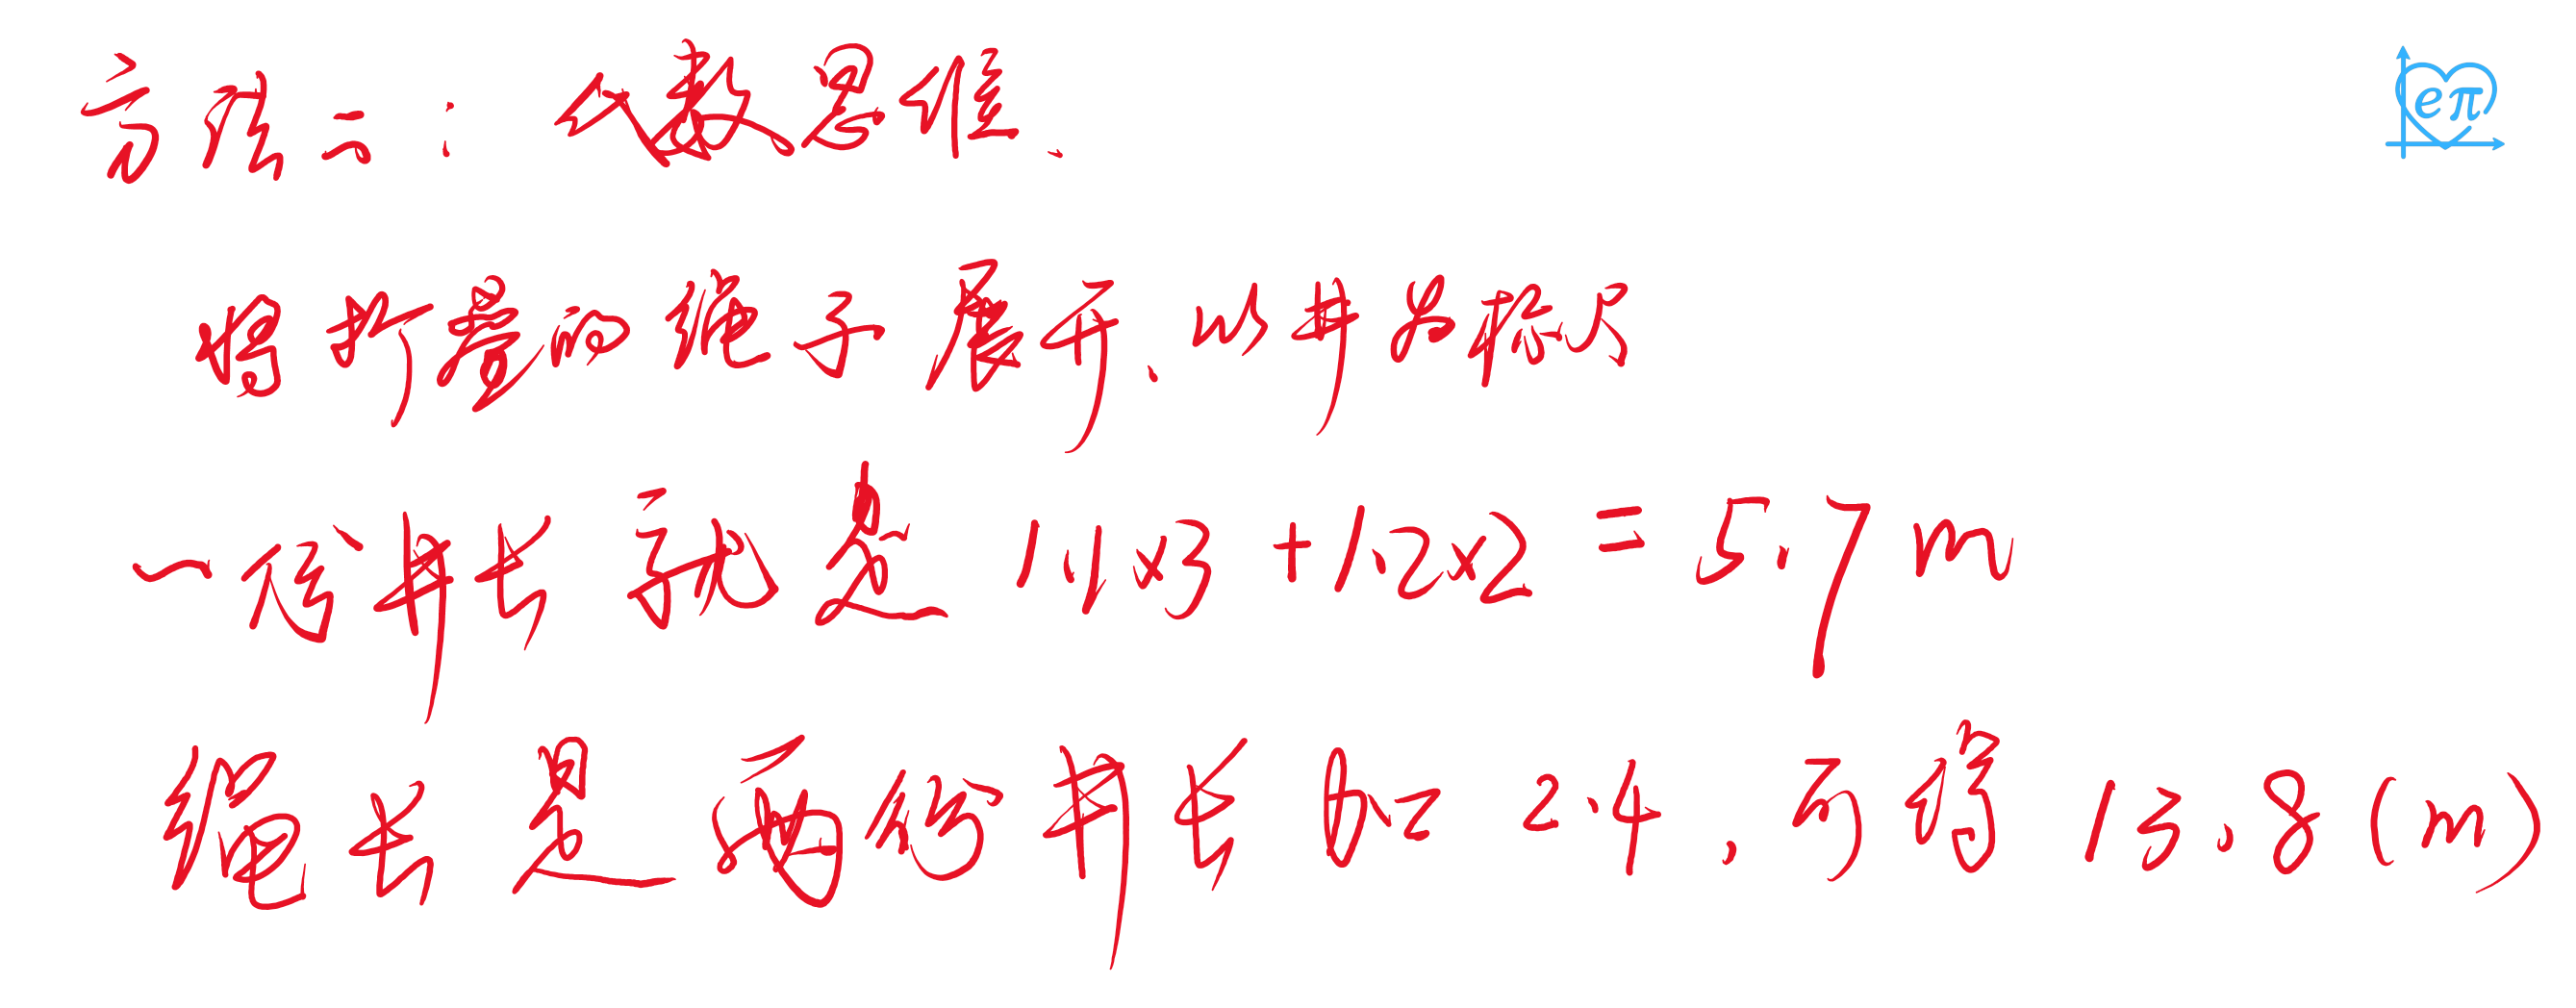 方法二：代数思维、
eπ
将折叠的绳子展开、以井为标尺
一份井长就是 1.1×3+1.2×2=5.7m
绳长是两份井长加2.4，可得13.8(m)